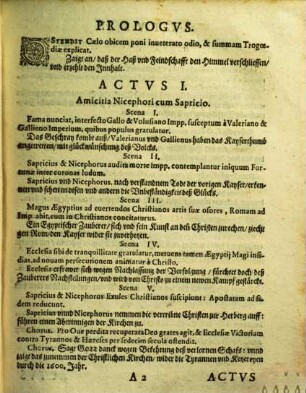 PROLOGVS.
OSTENDIT Cælo obicem poni inueterato odio, & summam Tragœ-
diæ explicat.
Zaigt an / daß der Haß vnd Feindschafft den Himmel verschliessen /
vnd erzehlt den Innhalt.
ACTVS I.
Amicitia Nicephori cum Sapricio.
Scena I.
Fama nunciat, interfecto Gallo & Volusiano Impp. susceptum à Valeriano &
Gallieno Imperium, quibus populus gratulator.
Das Geschray kombt auß / Valerianus vnd Gallienus haben das Kayserthumb
angetretten / mit glückwünschung deß Volcks.
Scena II.
Sapricius & Nicephorus audita morte Impp. contemplantur iniquum For-
tunæ inter coronas ludum.
Sapricius vnd Nicephorus, nach verstandnem Tode der vorigen Kayser / erken-
nen vnd sehen von andern die Vnbeständigkeit deß Glücks.
Scena III.
Magus Ægyptius ad euertendos Christianos artis suæ osores, Romam ad
Imp. abit, eum in Christianos concitaturus.
Ein Egyptischer Zauberer / sich vnd sein Kunst an den Christen zu rechen / ziecht
gen Rom / den Kayser wider sie zuverhetzen.
Scena IV.
Ecclesia sibi de tranquillitate gratulatur, metuens tamen Ægyptij Magi insi-
dias, ad nouam persecutionem animatur à Christo.
Ecclesia erfrewet sich wegen Nachlassung der Verfolgung / fürchtet doch deß
Zauberers Nachstellungen / vnd wird von Christo zu einem newen Kampf gestärckt.
Scena V.
Sapricius & Nicephorus Exules Christianos suscipiunt: Apostatam ad fi-
dem reducunt.
Sapricius vnnd Nicephorus nemmen die verribne Christen zur Herberg auff:
führen einen Abtrinnigen der Kirchen zu.
Chorus. Pro Oue perdita recuperata Deo grates agit, & Ecclesiæ Victoriam
contra Tyrannos & Hæreses per sedecim secula ostendit.
Chorus. Sagt Gott danck wegen Bekehrung deß verlornen Schafs: vnnd
zaigt das zunemmen der Christlichen Kirchen / wider die Tyrannen vnd Ketzereyen
durch die 1600. Jahr.
A 2 ACTVS